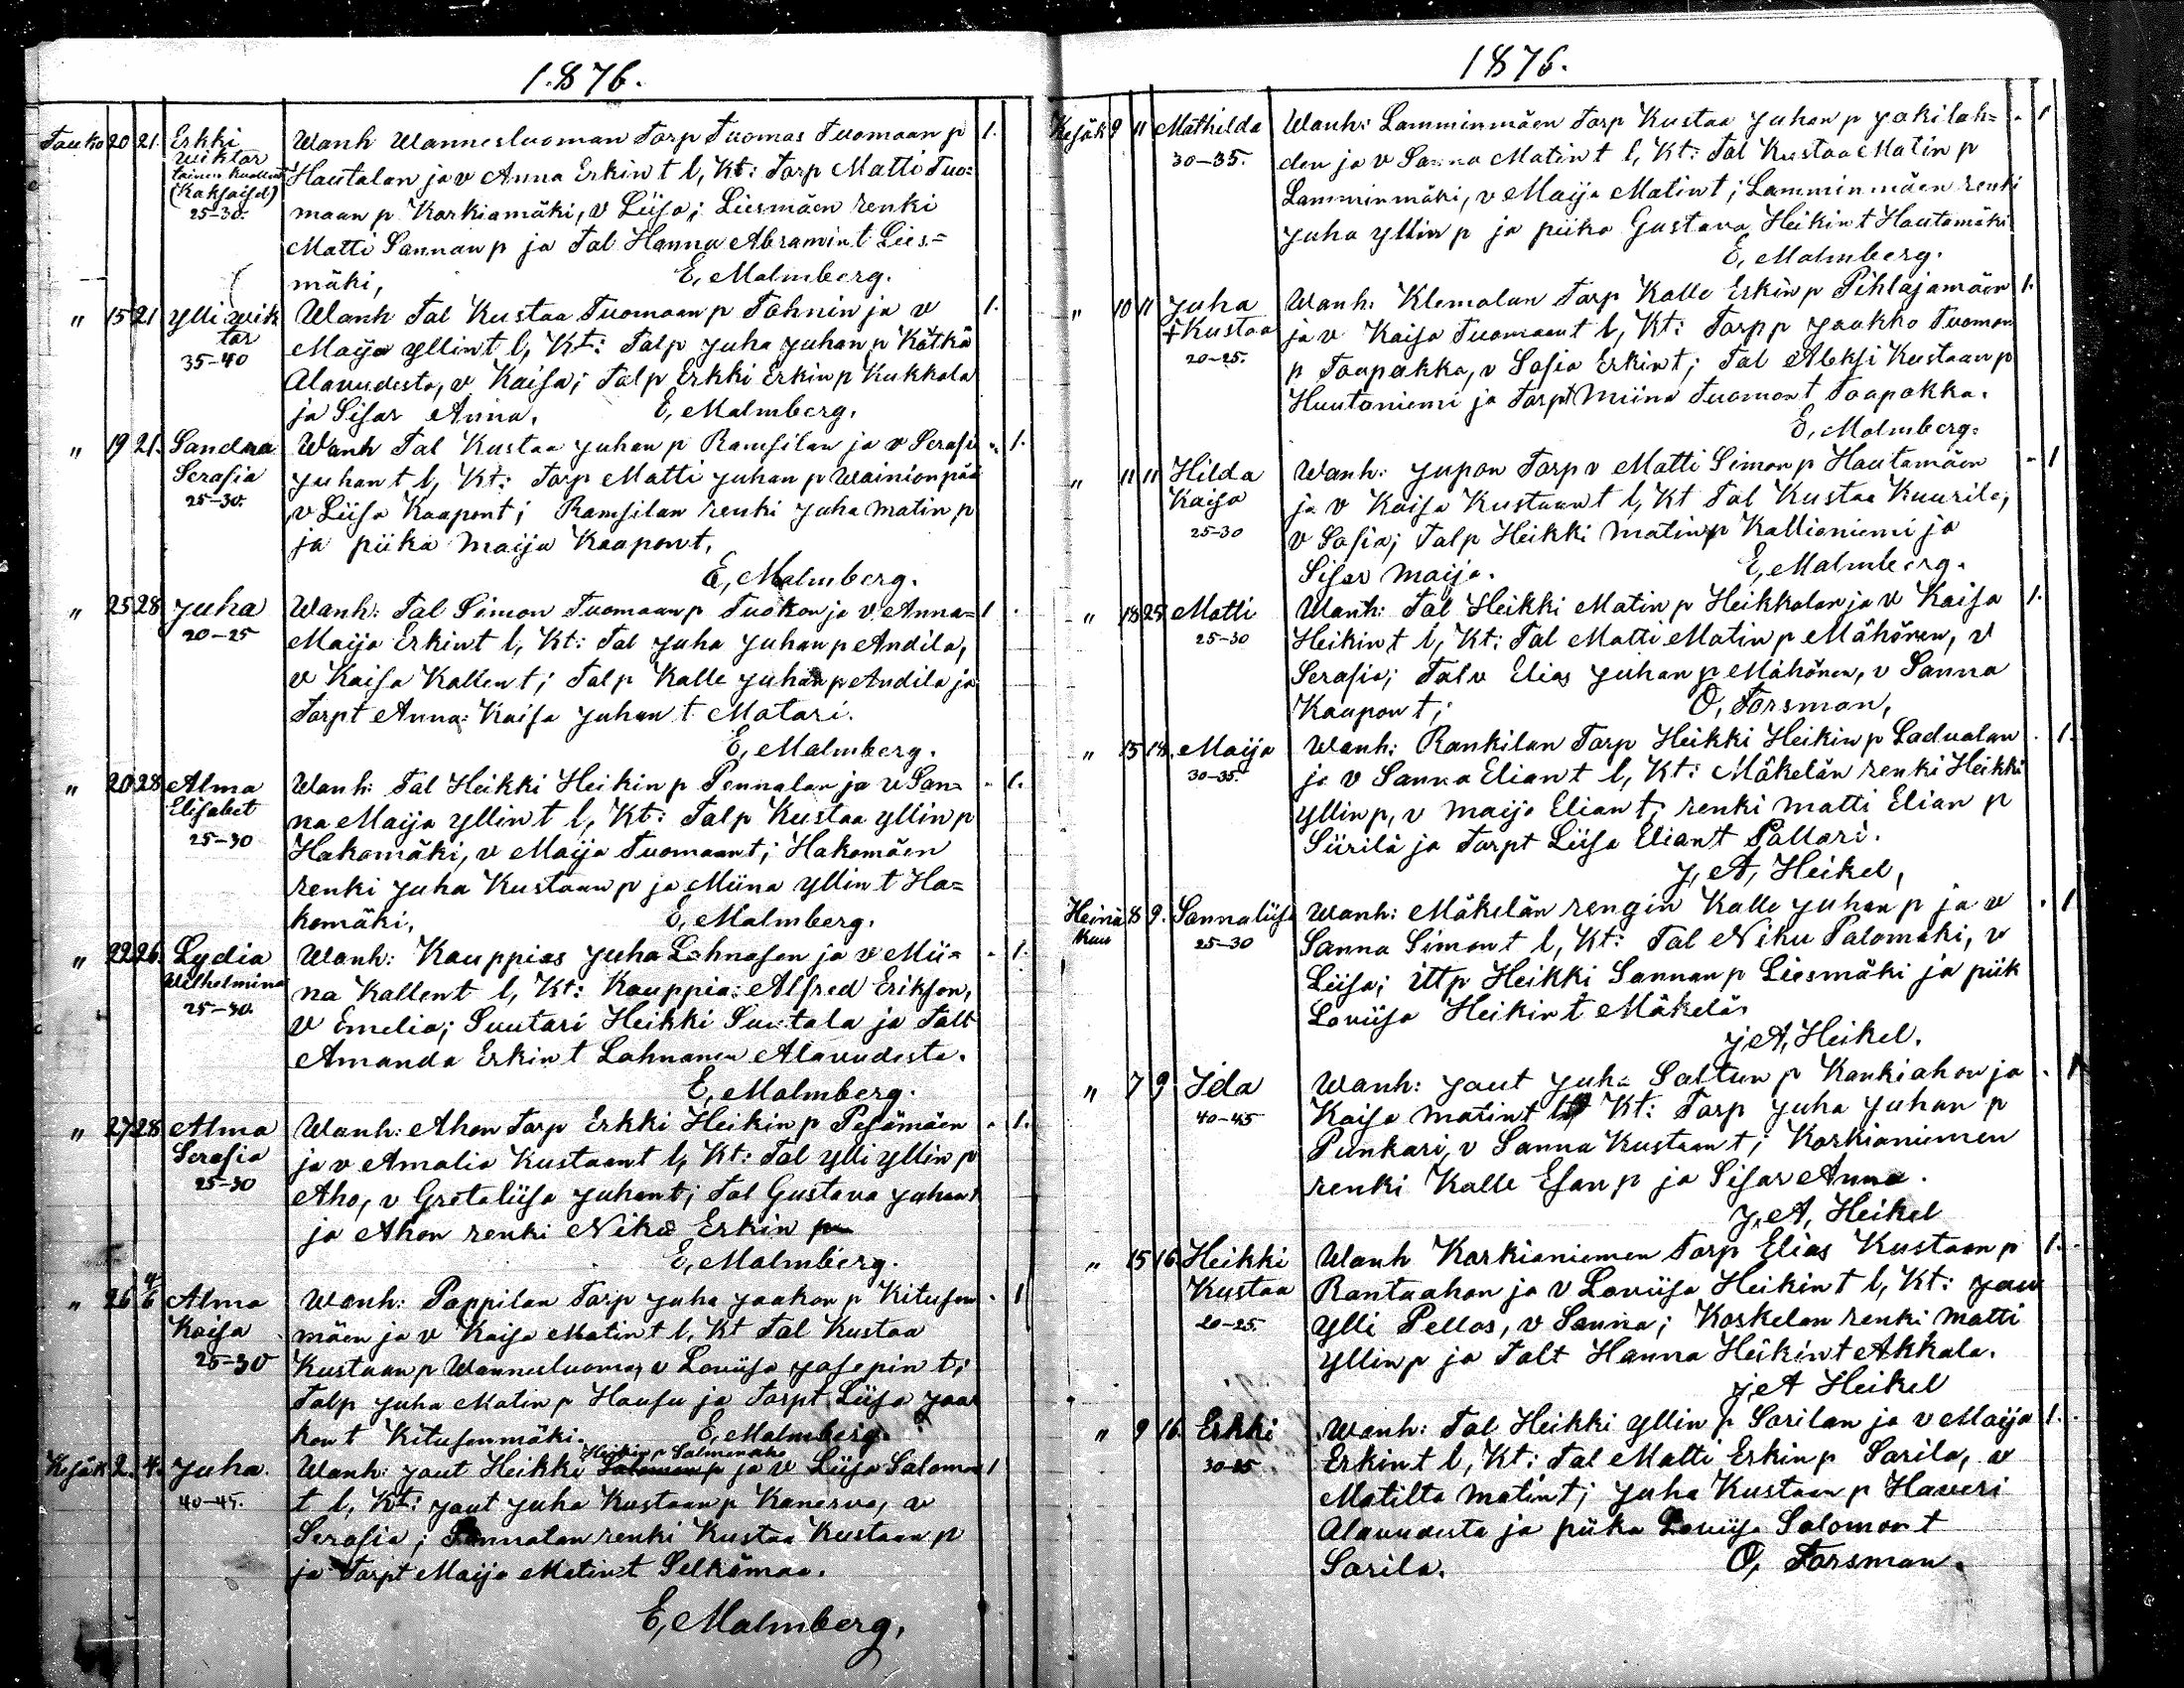 1876.
Touko 20 21. Erkki Wanh Wannesluoman Torp Tuomas Tuomaan p 1.
Wiktor
toinen kuollut Hautalan ja v Anna Erkin t l, Kt: Torp Matti Tuo=
(Kaksoiset)
25-30. maan p Korkiamäki, v Liisa; Liesmäen renki
Matti Sannan p ja Tal Hanna Abramin t Lies=
mäki, E, Malmberg.
" 15 21 Ylli Wik Wanh Tal Kustaa Tuomaan p Tohnin ja v 1.
tor Maija Yllin t l, Kt: Talp Juha Juhan p Kätkä
35-40 Alavudesta, v Kaisa; Talp Erkki Erkin p Kukkola
ja Sisar Anna. E, Malmberg.
" 19 21. Sandra Wanh Tal Kustaa Juhan p Ramsilan ja v Serafi " 1.
Serafia Juhan t l, Kt: Torp Matti Juhan p Wainionpää
25-30. v Liisa Kaapon t; Ramsilan renki Juha Matin p
ja piika Maija Kaapon t.
E, Malmberg.
" 25 28 Juha Wanh: Tal Simon Tuomaan p Tuokon ja v Anna= 1
20-25 Maija Erkin t l, Kt: Tal Juha Juhan p Andila,
v Kaisa Kallen t; Talp Kalle Juhan p Andila ja
Torpt Anna-Kaisa Juhan t Matari.
E, Malmberg.
" 20 28 Alma Wanh: Tal Heikki Heikin p Pennalan ja v San= " 1.
Elisabet na Maija Yllin t l, Kt: Talp Kustaa Yllin p
25-30 Hakomäki, v Maija Tuomaan t; Hakomäen
renki Juha Kustaan p ja Miina Yllin t Ha=
komäki, E, Malmberg.
" 22 26. Lydia Wanh: Kauppias Juha Lahnasen ja v Mii= " 1.
Wilhelmina na Kallen t l, Kt: Kauppias Alfred Erikson,
25-30. v Emelia; Suutari Heikki Suutala ja Talt
Amanda Erkin t Lahnanen Alavudesta.
E, Malmberg.
" 27 28 Alma Wanh: Ahon Torp Erkki Heikin p Pesämäen " 1.
Serafia ja v Amalia Kustaan t l, Kt: Tal Ylli Yllin p
25-30 Aho, v Gretaliisa Juhan t; Tal Gustava Juhan t
ja Ahon renki Niku Erkin p
E, Malmberg.
" 26 4/6 Alma Wanh: Pappilan Torp Juha Jaakon p Kitusen " 1
Kaisa mäen ja v Kaisa Matin t l, Kt Tal Kustaa
25-30 Kustaan p Wannesluoma, v Loviisa Josepin t;
Talp Juha Matin p Hausu ja Torpt Liisa Jaa
kon t Kitusenmäki. E, Malmberg.
Heikin p Salmenaho
Kesäk 2. 4. Juha Wanh: Jout Heikki Salomon p ja v Liisa Salomo 1
40-45. t l, Kt: Jout Juha Kustaan p Kanerva, v
Serafia; Pennalan renki Kustaa Kustaan p
ja Torpt Maija Matin t Selkämaa.
E, Malmberg,
1876.
Kesäk 9 11 Mathilda Wanh: Lamminmäen Torp Kustaa Juhan p Jokilah= " 1
30-35. den ja v Sanna Matin t l, Kt: Tal Kustaa Matin p
Lamminmäki, v Maija Matin t; Lamminmäen renki
Juha Yllin p ja piika Gustava Heikin t Hautamäki
E, Malmberg.
" 10 11 Juha Wanh: Klemolan Torp Kalle Erkin p Pihlajamäen 1.
+Kustaa ja v Kaisa Tuomaan t l, Kt: Torp p Jaakko Tuoman
20-25. p Taapakka, v Sofia Erkin t; Tal Aleksi Kustaan p
Huutoniemi ja Torpt Miina Tuomon t Taapakka.
E, Malmberg.
" 11 11 Hilda Wanh: Jupon Torp v Matti Simon p Hautamäen " 1
Kaisa ja v Kaisa Kustaan t l, Kt Tal Kustaa Kuurila,
25-30 v Sofia; Talp Heikki Matin p Kallioniemi ja
Sisar Maija. E, Malmberg.
" 18 25 Matti Wanh: Tal Heikki Matin p Heikkolan ja v Kaisa 1.
25-30 Heikin t l, Kt: Tal Matti Matin p Mähönen, v
Serafia; Talv Elias Juhan p Mähönen, v Sanna
Kaapon t; O, Forsman,
" 15 18. Maija Wanh: Rankilan Torp Heikki Heikin p Ladualan . 1.
30-35. ja v Sanna Elian t l, Kt: Mäkelän renki Heikki
Yllin p, v Maija Elian t, renki Matti Elian p
Siirilä ja Torpt Liisa Elian t Pallari.
J, A, Heikel,
Heinä 8 9. Sannaliisa Wanh: Mäkelän rengin Kalle Juhan p ja v . 1
kuu 25-30 Sanna Simon t l, Kt: Tal Niku Palomäki, v
Liisa; Itt p Heikki Sannan p Liesmäki ja piik
Loviisa Heikin t Mäkelä.
J, A, Heikel.
" 7 9 Ida Wanh: Jout Juha Saltun p Kankiahon ja . 1
40-45 Kaisa Matin t l, Kt: Torp Juha Juhan p
Punkari, v Sanna Kustaan t; Korkianiemen
renki Kalle Esan p ja Sisar Anna.
J, A, Heikel
" 15 16. Heikki Wanh Korkianiemen Torp Elias Kustaan p 1.
Kustaa Rantaahon ja v Loviisa Heikin t l, Kt: Jou
20-25. Ylli Pellas, v Sanna; Koskelan renki Matti
Yllin p ja Talt Hanna Heikin t Akkala.
J, A Heikel
" 9 16. Erkki Wanh: Tal Heikki Yllin p Sarilan ja v Maija 1.
30-35 Erkin t l, Kt: Tal Matti Erkin p Sarila, v
Matilta Matin t; Juha Kustaan p Haveri
Alavudesta ja piika Loviisa Salomon t
Sarila. O, Forsman.